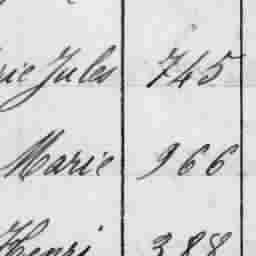 rie Jules 745
Marie 966
Henri 388